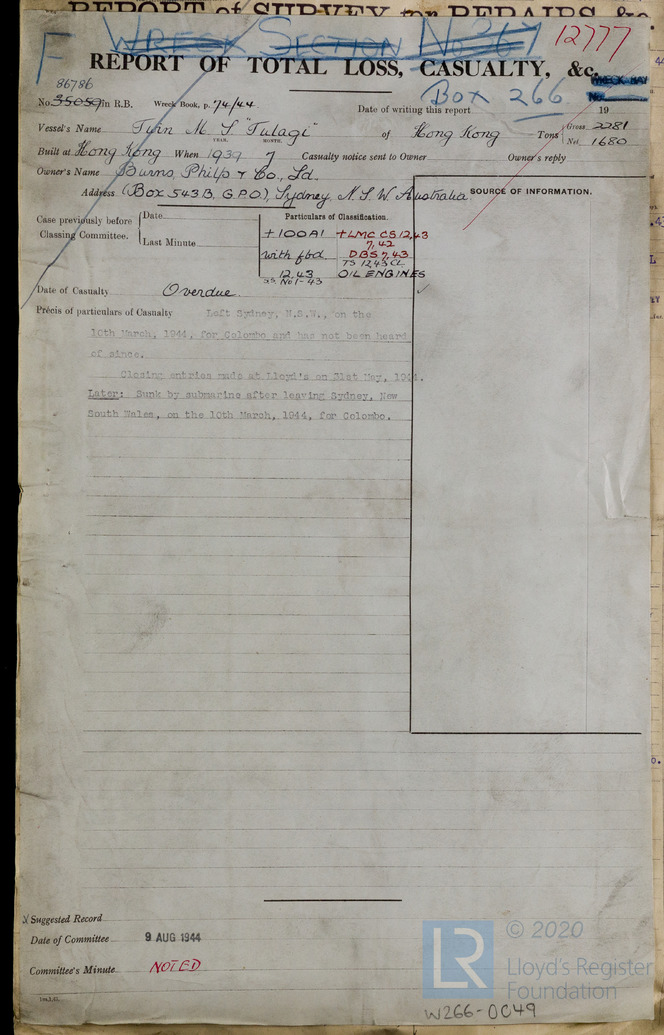 REPORT of SURVEY for REPAIRS, &c
WRECK SECTION No 267
12777
F
REPORT OF TOTAL LOSS, CASUALTY, &c.
WRECK
86786
BOX 266
No. 35059 in R.B. Wreck Book, p. 74/44
Date of writing this report 19
Vessel's Name Twin M. S "Tulagi" of Hong Kong Tons Gross 2281 Net 1680
YEAR. MONTH.
Built at Hong Kong When 1939 7 Casualty notice sent to Owner Owner's reply
Owner's Name Burns, Philp & Co., Ld.
Address (Box 543B, G.P.O.), Sydney, N.S.W. Australia
SOURCE OF INFORMATION.
Case previously before Classing Committee. Date Last Minute
Particulars of Classification.
+100A1 +LMC CS 12,43
7,42
with fbd DBS 7,43
TS 12,43 CL
12,43 OIL ENGINES
SS. No1-43
Date of Casualty Overdue.
Précis of particulars of Casualty Left Sydney, N.S.W., on the
10th March, 1944, for Colombo and has not been heard
of since.
Closing entries made at Lloyd's on 31st May, 1944.
Later: Sunk by submarine after leaving Sydney, New
South Wales, on the 10th March, 1944, for Colombo.
Suggested Record
Date of Committee 9 AUG 1944
Committee's Minute NOTED
LR
© 2020
Lloyd's Register
Foundation
W266-0049